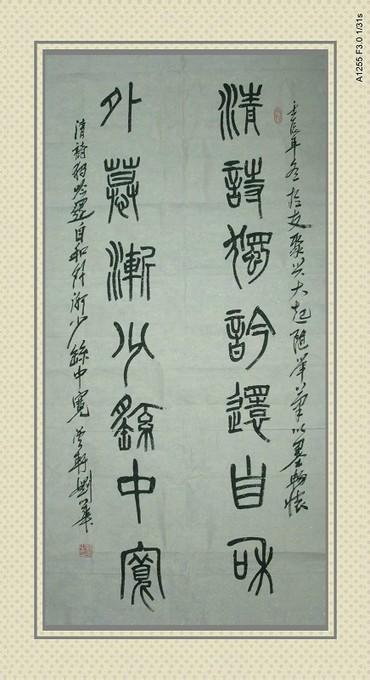 A1255 F3.0 1/31s
壬辰年冬於友聚興大起隨筆以墨抒懷
清詩獨吟還自和
外慕漸少繇中寬
清詩獨吟還自和外慕漸少繇中寬 軒劉華